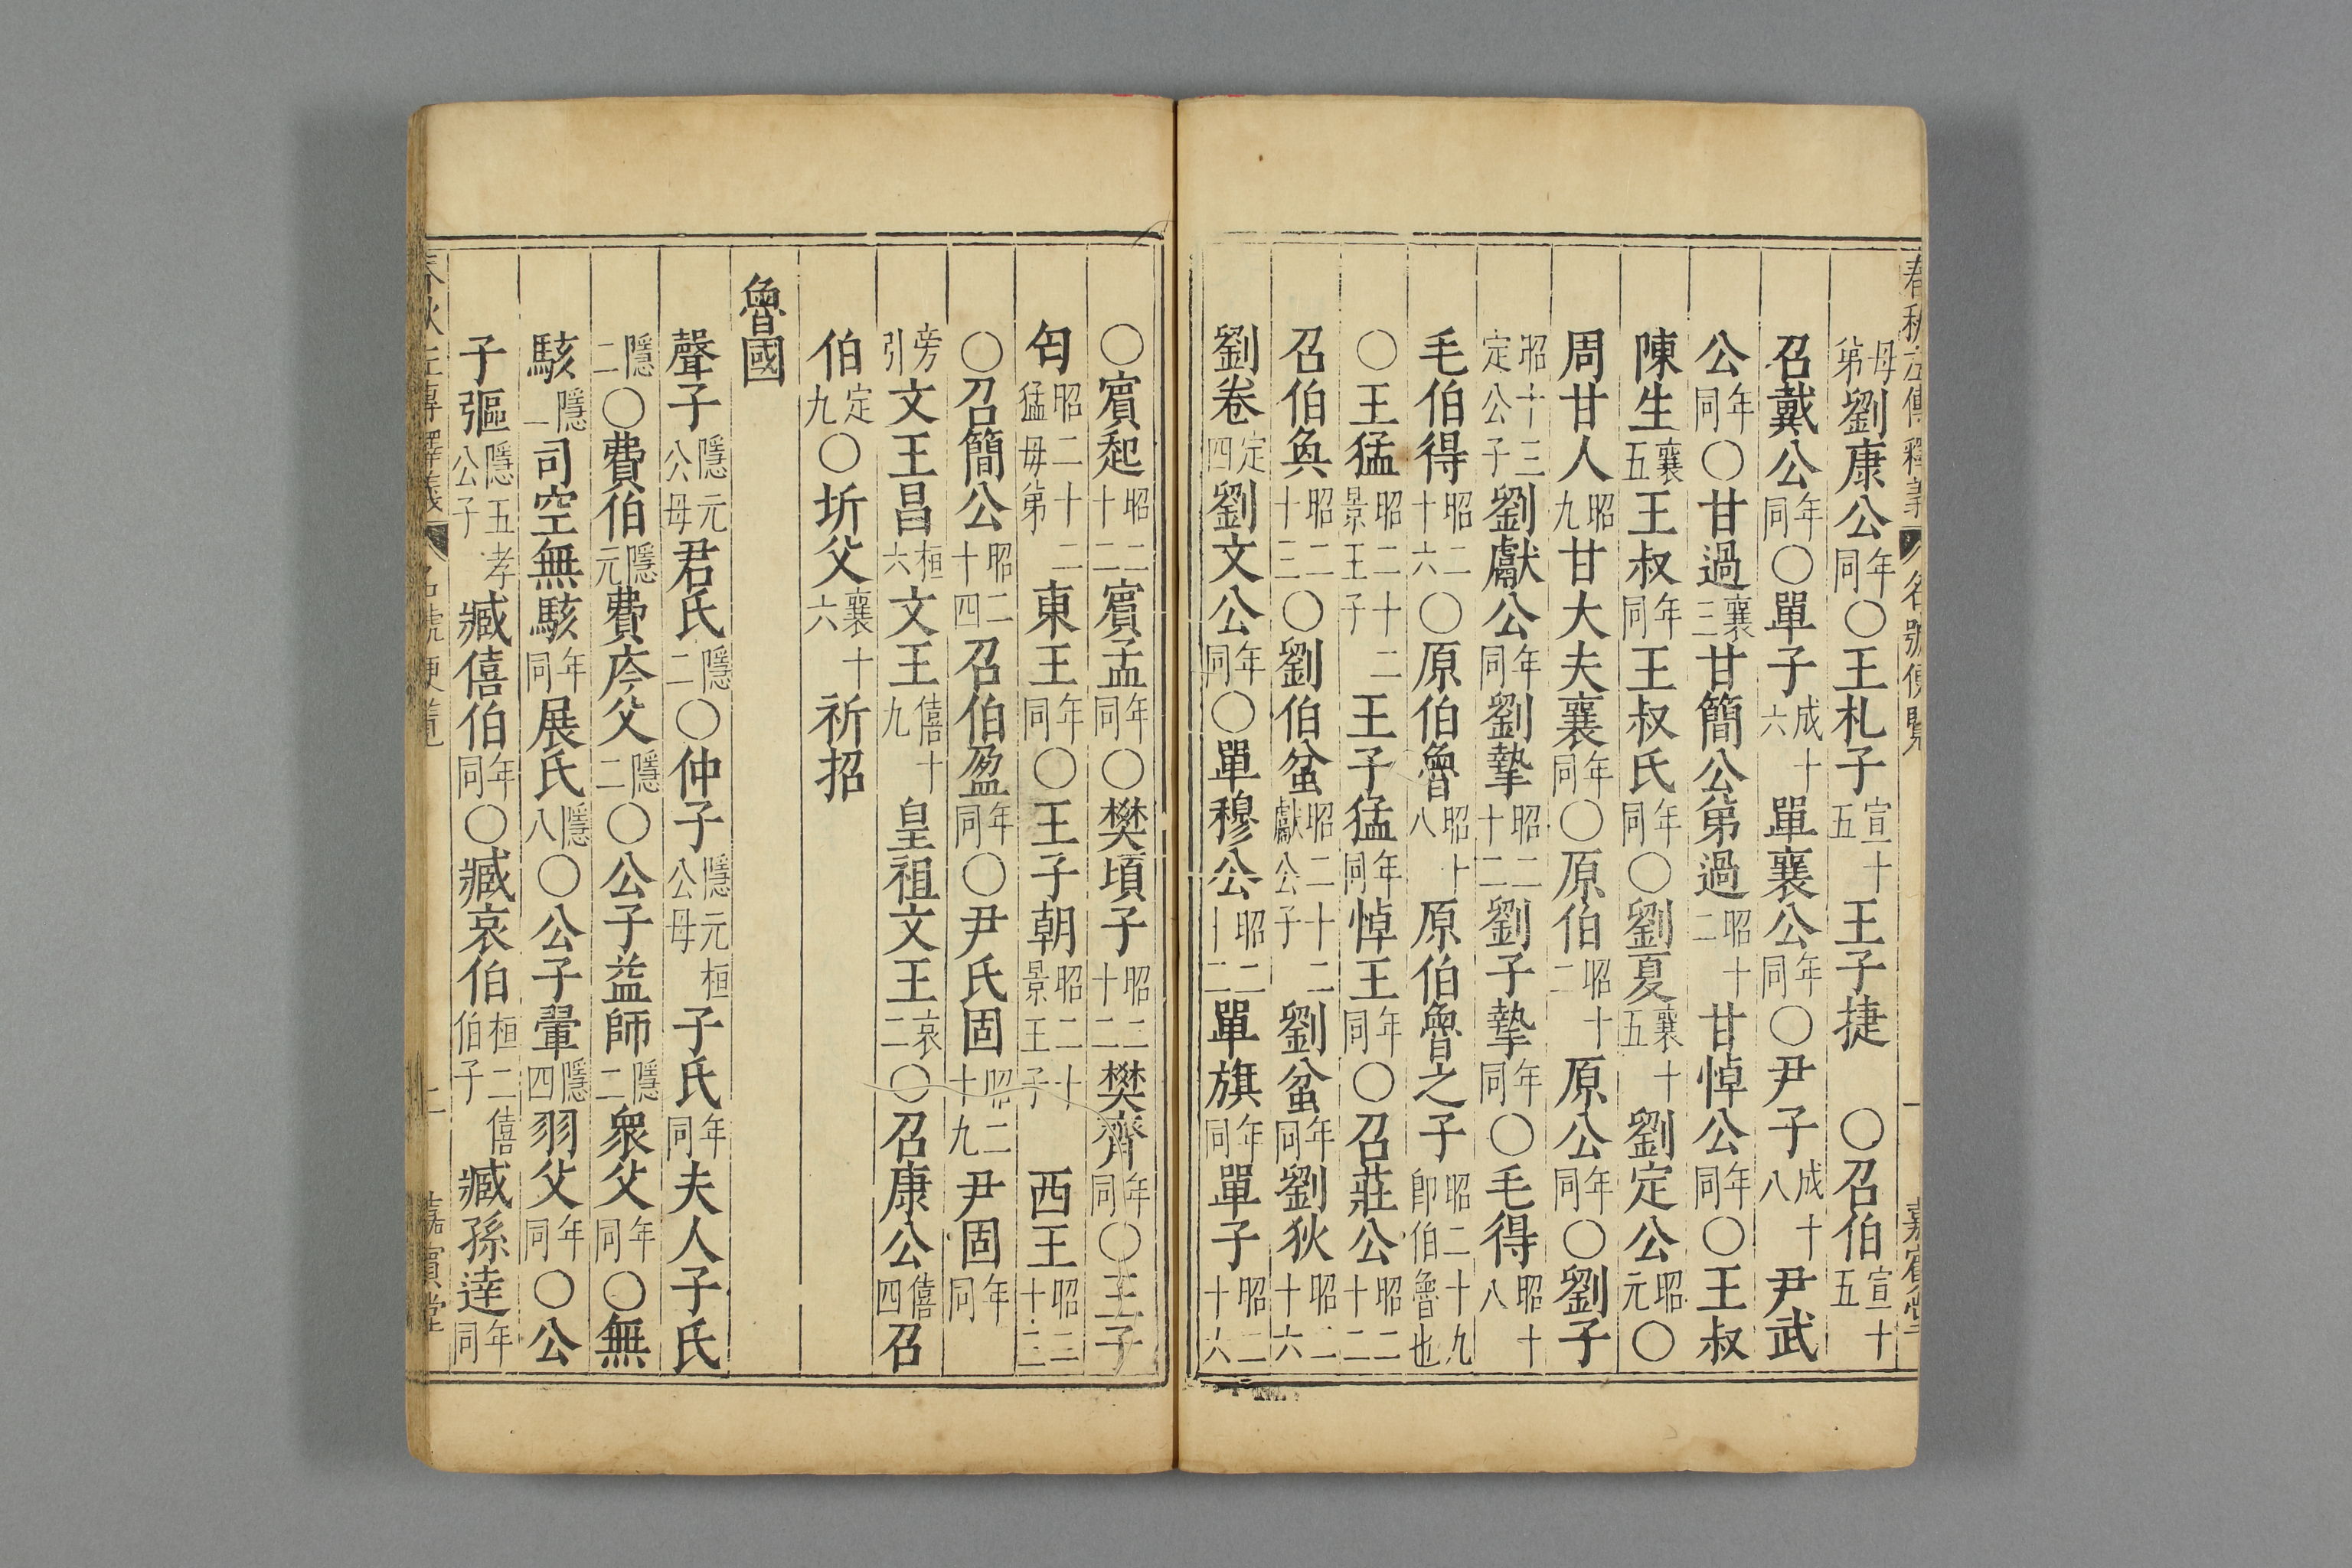 春秋左傳釋義 名號便覽 嘉賓堂
母弟劉康公同年〇王札子宣十五王子捷〇召伯宣十五
召戴公同年〇單子成十六單襄公同年〇尹子成十八尹武
公同年〇甘過襄三甘簡公弟過昭十二甘悼公同年〇王叔
陳生襄五王叔同年王叔氏同年〇劉夏襄十五劉定公昭元〇
周甘人昭九甘大夫襄同年〇原伯昭十二原公同年〇劉子
昭十三定公子劉獻公同年劉摯昭二十二劉子摯同年〇毛得昭十八
毛伯得昭二十六〇原伯魯昭十八原伯魯之子昭二十九卽伯魯也
〇王猛昭二十二景王子王子猛同年悼王同年〇召莊公昭二十二
召伯奐昭二十三〇劉伯蚠昭二十二獻公子劉蚠同年劉狄昭二十六
劉卷定四劉文公同年〇單穆公昭二十二單旗同年單子昭二十六
〇賓起昭二十二賓孟同年〇樊頃子昭二十二樊齊同年〇王子
匄昭二十二猛母弟東王同年〇王子朝昭二十二景王子西王昭二十三
〇召簡公昭二十四召伯盈同年〇尹氏固昭二十九尹固同年
旁引文王昌桓六文王僖十九皇祖文王哀二〇召康公僖四召
伯定九〇圻父襄十六祈招
魯國
聲子隱元公母君氏隱二〇仲子隱元桓公母子氏同年夫人子氏
隱二〇費伯隱元費庈父隱二〇公子益師隱二衆父同年〇無
駭隱二司空無駭同年展氏隱八〇公子翬隱四羽父同年〇公
子彄隱五孝公子臧僖伯同年〇臧哀伯桓二僖伯子臧孫達同年
春秋左傳釋義 名號便覽 二 嘉賓堂